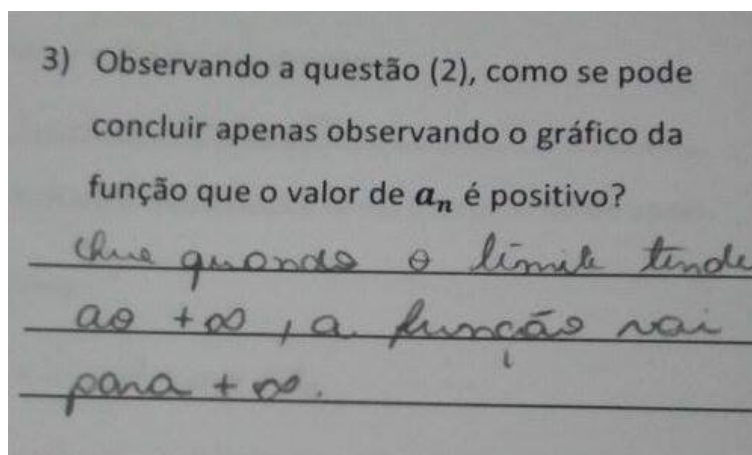 3) Observando a questão (2), como se pode
concluir apenas observando o gráfico da
função que o valor de aₙ é positivo?
Que quando o limite tende
ao +∞, a função vai
para +∞.